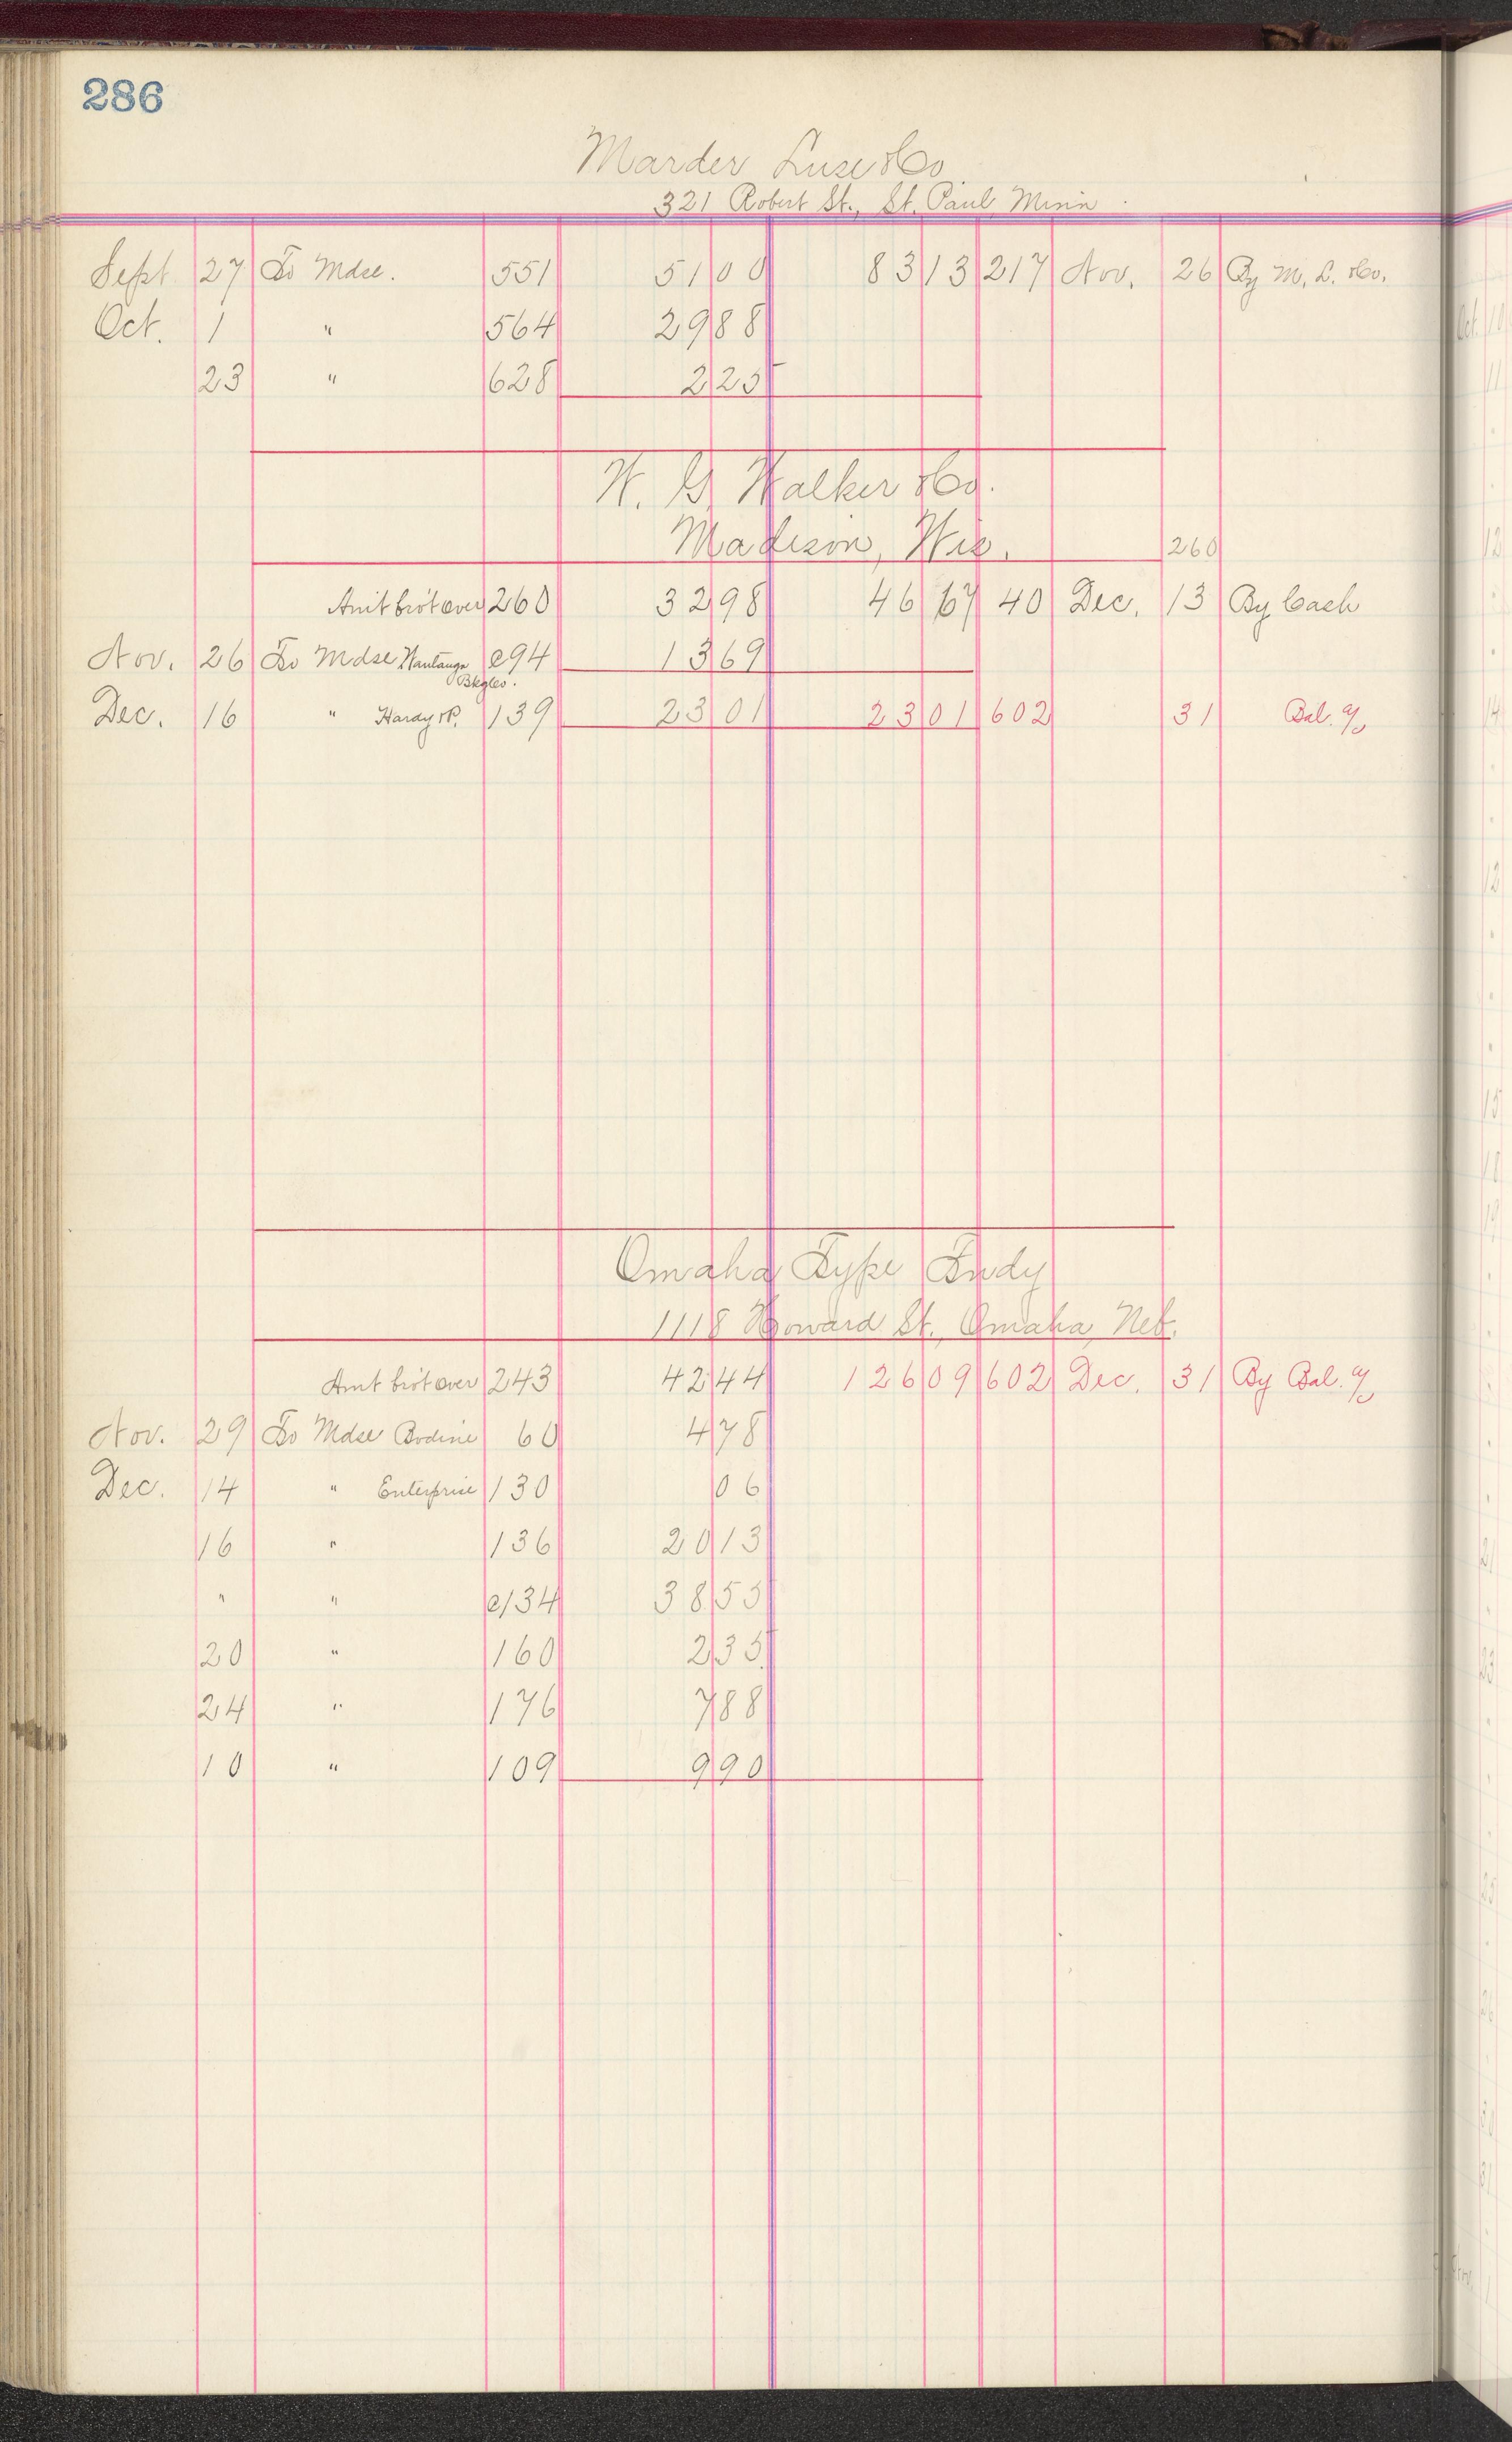 286
Marder Luse & Co
321 Robert St., St. Paul, Minn
Sept 27 To Mdse. 551 51 00 83 13 217 Nov. 26 By M. L. & Co.
Oct. 1 " 564 29 88
23 " 628 2 25
W. G. Walker & Co.
Madison, Wis. 260
Amt bro't over 260 32 98 46 67 40 Dec. 13 By Cash
Nov. 26 To Mdse e94 13 69
Dec. 16 " Hardy & P. 139 23 01 23 01 602 31 Bal. a/c
Omaha Type Fndy
1118 Howard St., Omaha, Neb.
Amt bro't over 243 42 44 126 09 602 Dec. 31 By Bal. a/c
Nov. 29 To Mdse Bodine 60 4 78
Dec. 14 " Enterprise 130 06
16 " 136 20 13
" " e134 38 55
20 " 160 2 35
24 " 176 7 88
10 " 109 9 90